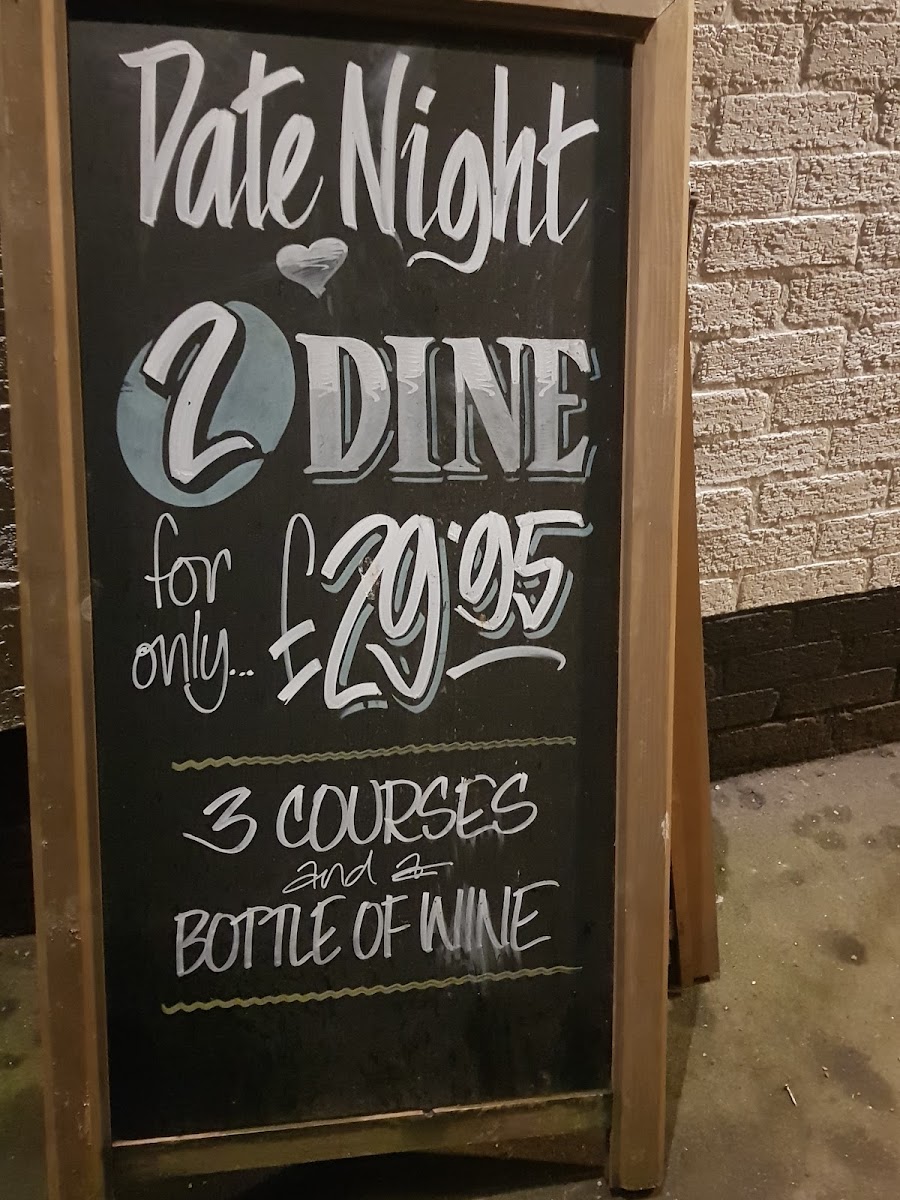 Date Night
2 DINE
for only... £29.95
3 COURSES
and a
BOTTLE OF WINE